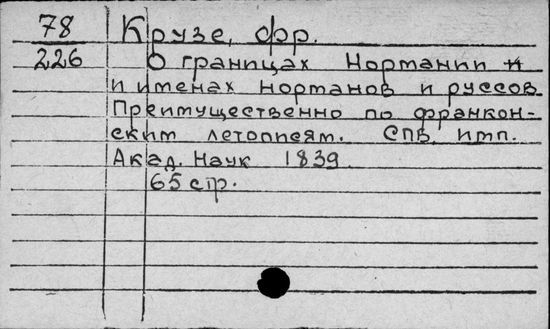 78 Крузе, фр.
226 О границах Нортании и
и итенах нортанов и руссов
Преитущественно по франкон-
скит летописят. СПБ, итп.
Акад. Наук 1839.
65 стр.